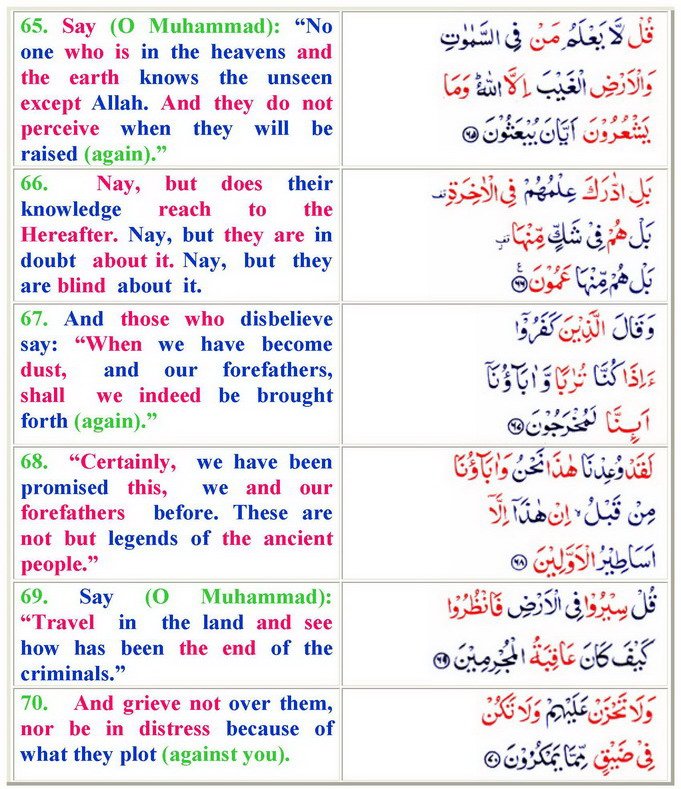 65. Say (O Muhammad): “No
one who is in the heavens and
the earth knows the unseen
except Allah. And they do not
perceive when they will be
raised (again).”
قُلْ لَّا يَعْلَمُ مَنْ فِي السَّمٰوٰتِ
وَالْاَرْضِ الْغَيْبَ اِلَّا اللّٰهُ ؕ وَمَا
يَشْعُرُوْنَ اَيَّانَ يُبْعَثُوْنَ ۶۵
66. Nay, but does their
knowledge reach to the
Hereafter. Nay, but they are in
doubt about it. Nay, but they
are blind about it.
بَلِ ادّٰرَكَ عِلْمُهُمْ فِي الْاٰخِرَةِ ۫
بَلْ هُمْ فِيْ شَكٍّ مِّنْهَا ۫
بَلْ هُمْ مِّنْهَا عَمُوْنَ ۶۶
67. And those who disbelieve
say: “When we have become
dust, and our forefathers,
shall we indeed be brought
forth (again).”
وَقَالَ الَّذِيْنَ كَفَرُوْۤا
ءَاِذَا كُنَّا تُرٰبًا وَّاٰبَآؤُنَاۤ
اَىِٕنَّا لَمُخْرَجُوْنَ ۶۷
68. “Certainly, we have been
promised this, we and our
forefathers before. These are
not but legends of the ancient
people.”
لَقَدْ وُعِدْنَا هٰذَا نَحْنُ وَاٰبَآؤُنَا
مِنْ قَبْلُ ۙ اِنْ هٰذَاۤ اِلَّاۤ
اَسَاطِيْرُ الْاَوَّلِيْنَ ۶۸
69. Say (O Muhammad):
“Travel in the land and see
how has been the end of the
criminals.”
قُلْ سِيْرُوْا فِي الْاَرْضِ فَانْظُرُوْا
كَيْفَ كَانَ عَاقِبَةُ الْمُجْرِمِيْنَ ۶۹
70. And grieve not over them,
nor be in distress because of
what they plot (against you).
وَلَا تَحْزَنْ عَلَيْهِمْ وَلَا تَكُنْ
فِيْ ضَيْقٍ مِّمَّا يَمْكُرُوْنَ ۷۰